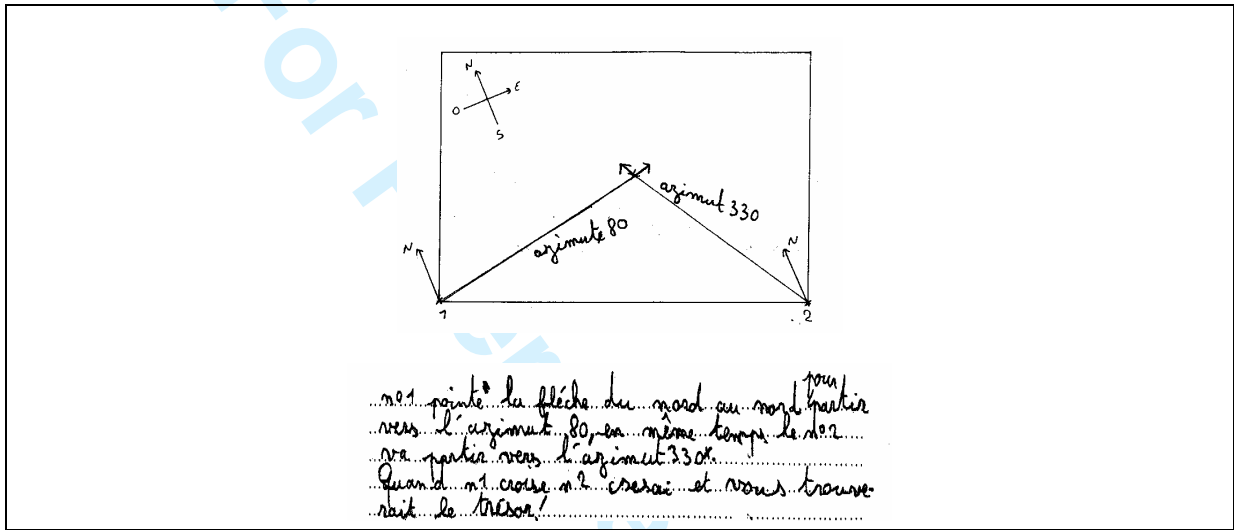 N
E
O
S
azimut 330
azimute 80
N
N
1
2
pour
nº1 pointe la fléche du nord au nord partir
vers l'azimut 80, en même temps le nº2
va partir vers l'azimut 330*.
Quand n1 croise n2 csesai et vous trouve-
rait le trésor!